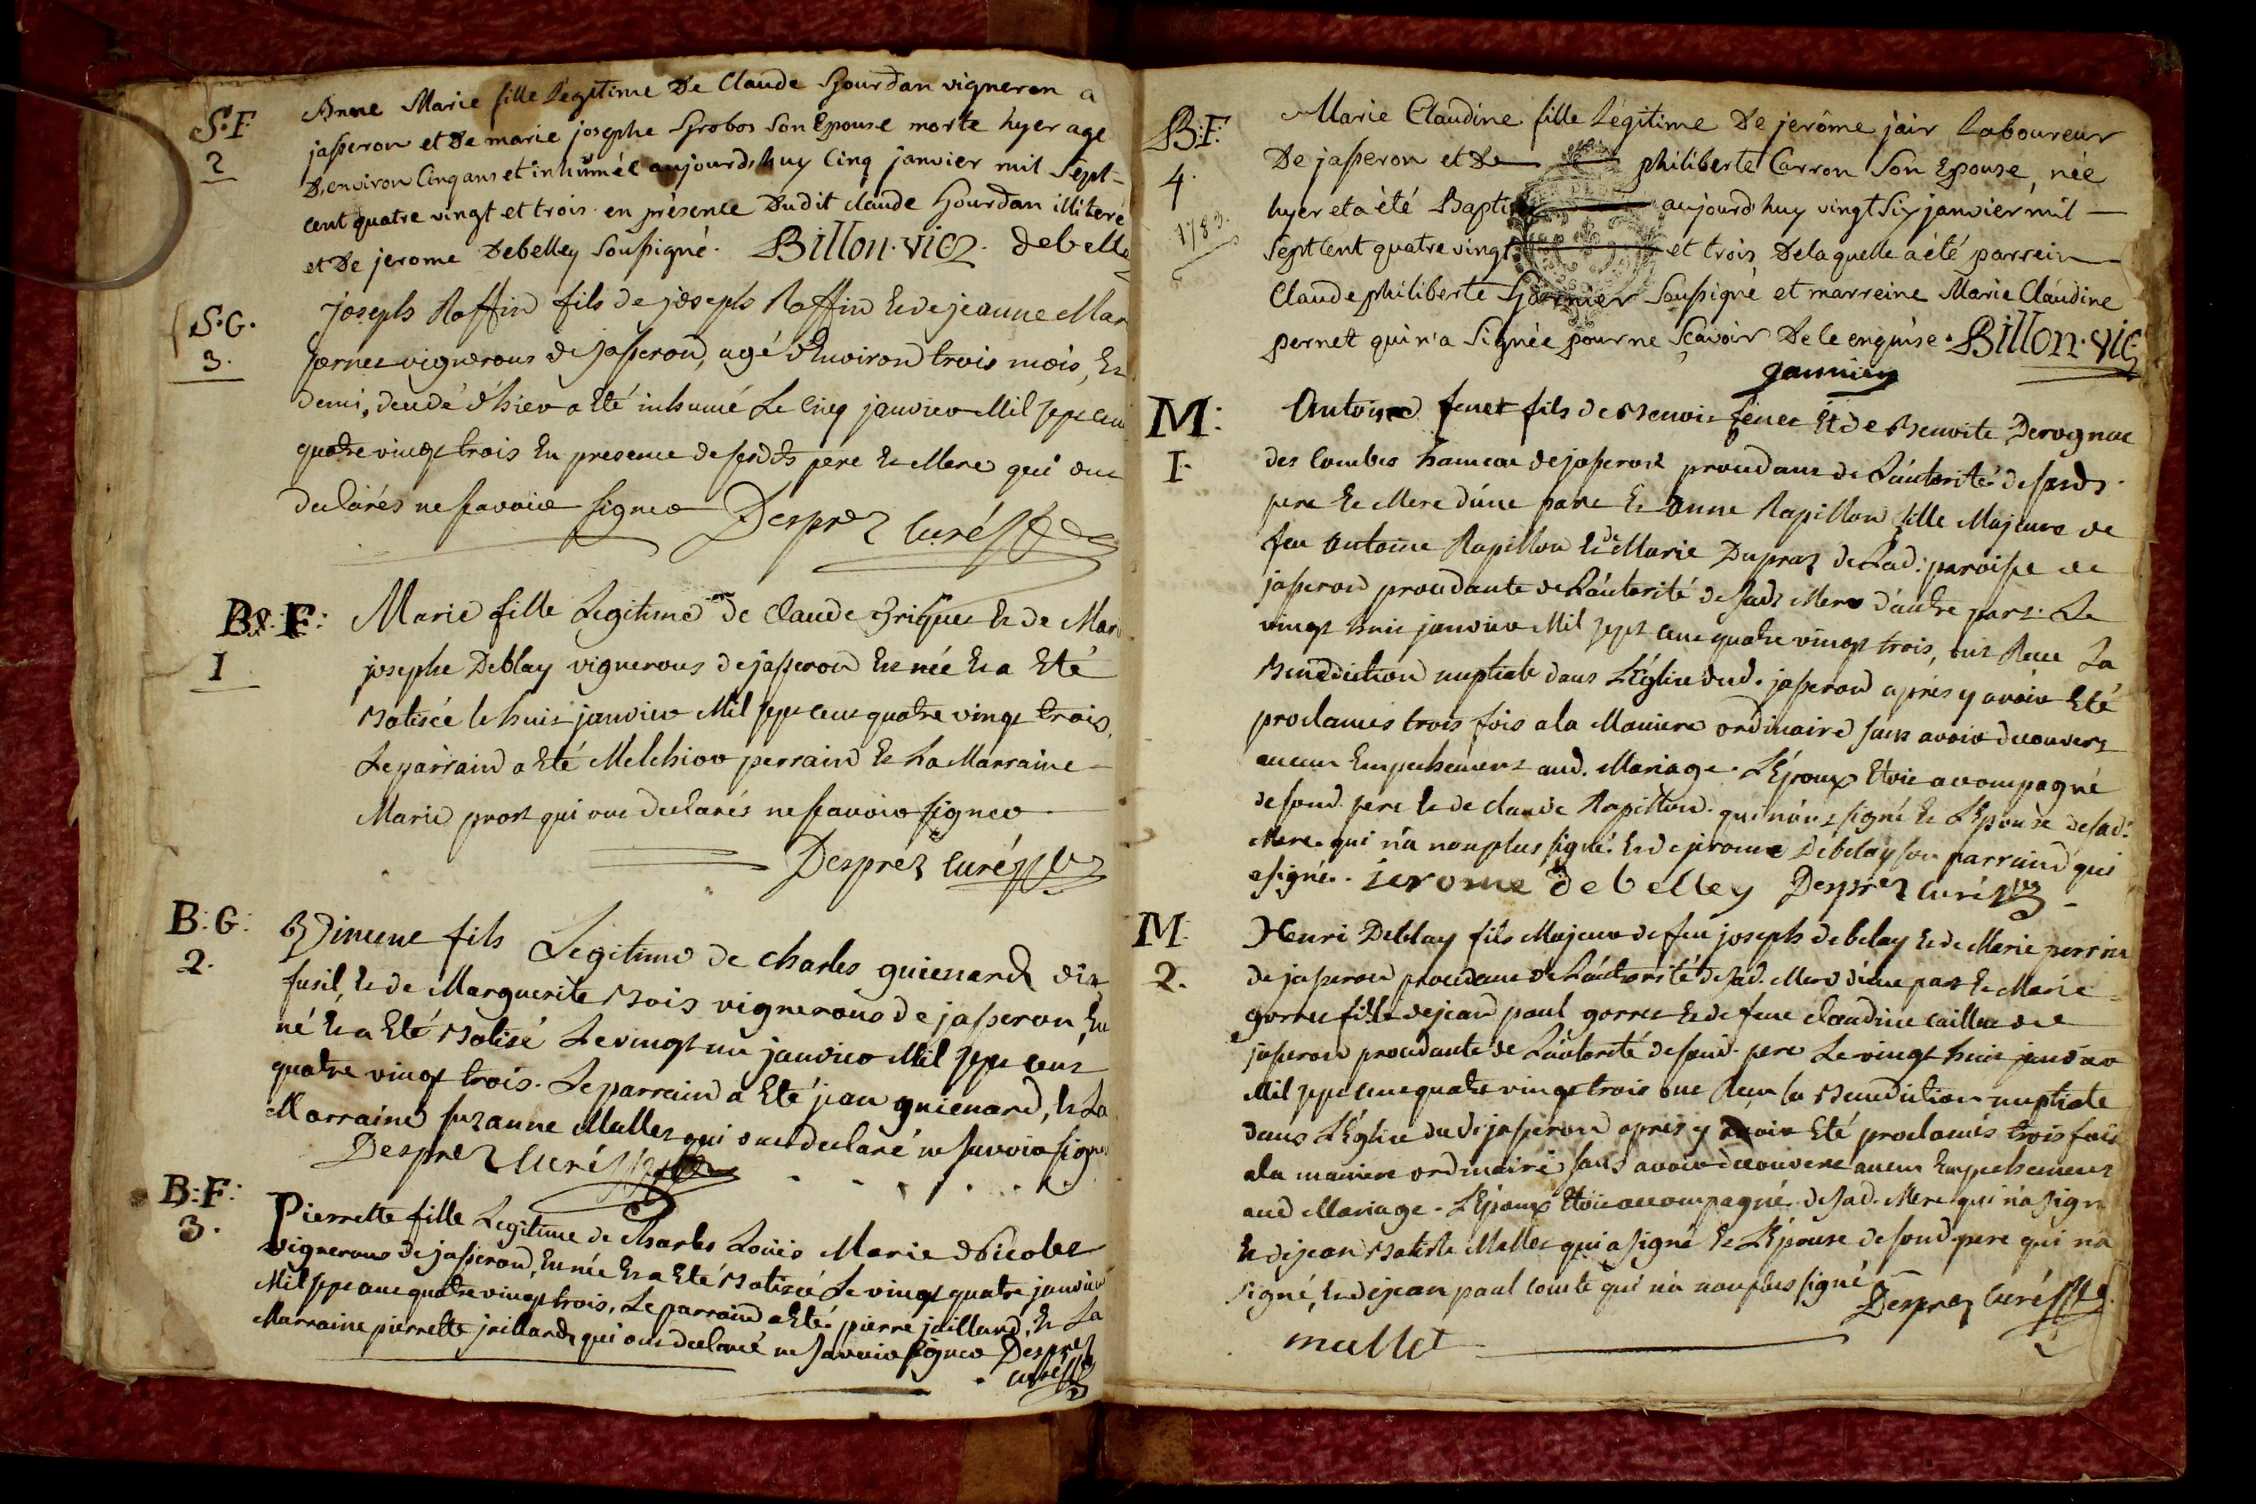 S.F
2
Anne Marie fille Legitime De Claude Gourdan vigneron a
jasseron et De marie josephe Grobos Son Epouse morte hyer age
D'environ Cinq ans et inhumée aujourd'huy Cinq janvier mil Sept-
cent quatre vingt et trois en présence Dudit claude Gourdan illiteré
et De jerome Debelley Soussigné. Billon. vic. debelley
S.G.
3.
joseph Raffin fils de joseph Raffin & de jeanne Mar
vignerons de jasseron, agé d'Environ trois mois, &
demi, decedé d'hier a Eté inhumé Le Cinq janvier Mil sept cent
quatre vingt trois En presence de sesdts pere & Mere qui ont
declarés ne savoir signer Desprez Curé
B: F:
1
Marie fille Legitime de Claude & de Marie
josephe Deblay vignerons de jasseron Est née & a Eté
Batisée le huit janvier Mil sept cent quatre vingt trois,
Le parraind a Eté Melchior perraind & La Marraine
Marie prost qui ont declarés ne savoir signer
Desprez Curé
B: G:
2.
fils Legitime de Charles guienard dit
fusil, & de Marguerite Bois vignerons de jasseron, Est
né & a Eté Batisé Le vingt un janvier Mil sept cent
quatre vingt trois. Le parraind a Eté jean guienard, & La
Marraine suzanne Mallet qui ont declaré ne savoir signer
Desprez Curé
B: F:
3.
Pierrette fille Legitime de Charles Loüis Marie
vignerons de jasseron, Est née & a Eté Batisée Le vingt quatre janvier
Mil sept cent quatre vingt trois, Le parraind a Eté pierre jaillard, & La
Marraine pierrette jaillard qui ont declaré ne savoir signer Desprez
curé
B: F:
4.
1783.
Marie Claudine fille Légitime De jerôme jair Laboureur
De jasseron et De philiberte Carron Son Epouse, née
hyer et a été Bapti aujourd'huy vingt Six janvier mil
Sept Cent quatre vingt et trois De laquelle a été parrein
Claude philiberte Garnier Soussigné et marreine Marie Claudine
pernet qui n'a Signée pour ne Sçavoir De ce enquise. Billon. vic
garnier
M:
1.
Antoine fenet fils de Benoit fenet Et de Benoite Derognat
des Combes hameau de jasseron procedant de L'autorité de sesds.
pere & Mere d'une part & Anne Rapillon fille Majeure de
feu Antoine Rapillon & de Marie Dupraz de Lad: paroisse de
jasseron procedante de L'autorité de sads Mere d'autre part. Le
vingt huit janvier Mil sept cent quatre vingt trois, ont Recu La
Benediction nuptiale dans L'Eglise dud. jasseron aprés y avoir Eté
proclamés trois fois a la Maniere ordinaire sans avoir decouvert
aucun Empechement aud. Mariage. L'Epoux Etoit accompagné
de sond. pere & de claude Rapillond. qui n'ont signé & L'Epouse de sad:
Mere qui n'a nonplus signé. & de jerome Debelay son parraind qui
a signé. jerome debelley Desprez Curé
M:
2.
Henri Deblay fils Majeur de feu joseph debelay & de Marie perrin
de jasseron procedant de L'autorité de sad. Mere d'une part & Marie
gorret fille de jean paul gorret & de feue claudine caillet de
jasseron procedante de L'autorité de sond. pere Le vingt huit janvier
Mil sept cent quatre vingt trois ont Recu la Benediction nuptiale
dans L'Eglise dud. jasseron aprés y avoir Eté proclamés trois fois
a la maniere ordinaire sans avoir decouvert aucun Empechement
aud Mariage. L'Epoux Etoit accompagné de sad. Mere qui n'a sign
& de jean Batiste Mallet qui a signé & L'Epouse de sond. pere qui n'a
signé, & de jean paul comte qui n'a nonplus signé
Desprez Curé
mallet